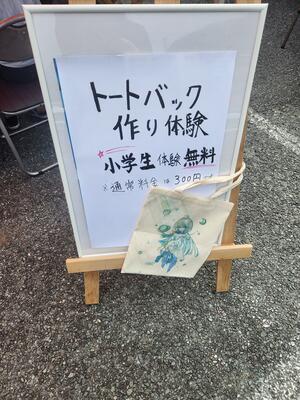 トートバック
作り体験
☆小学生体験無料
※通常料金は300円